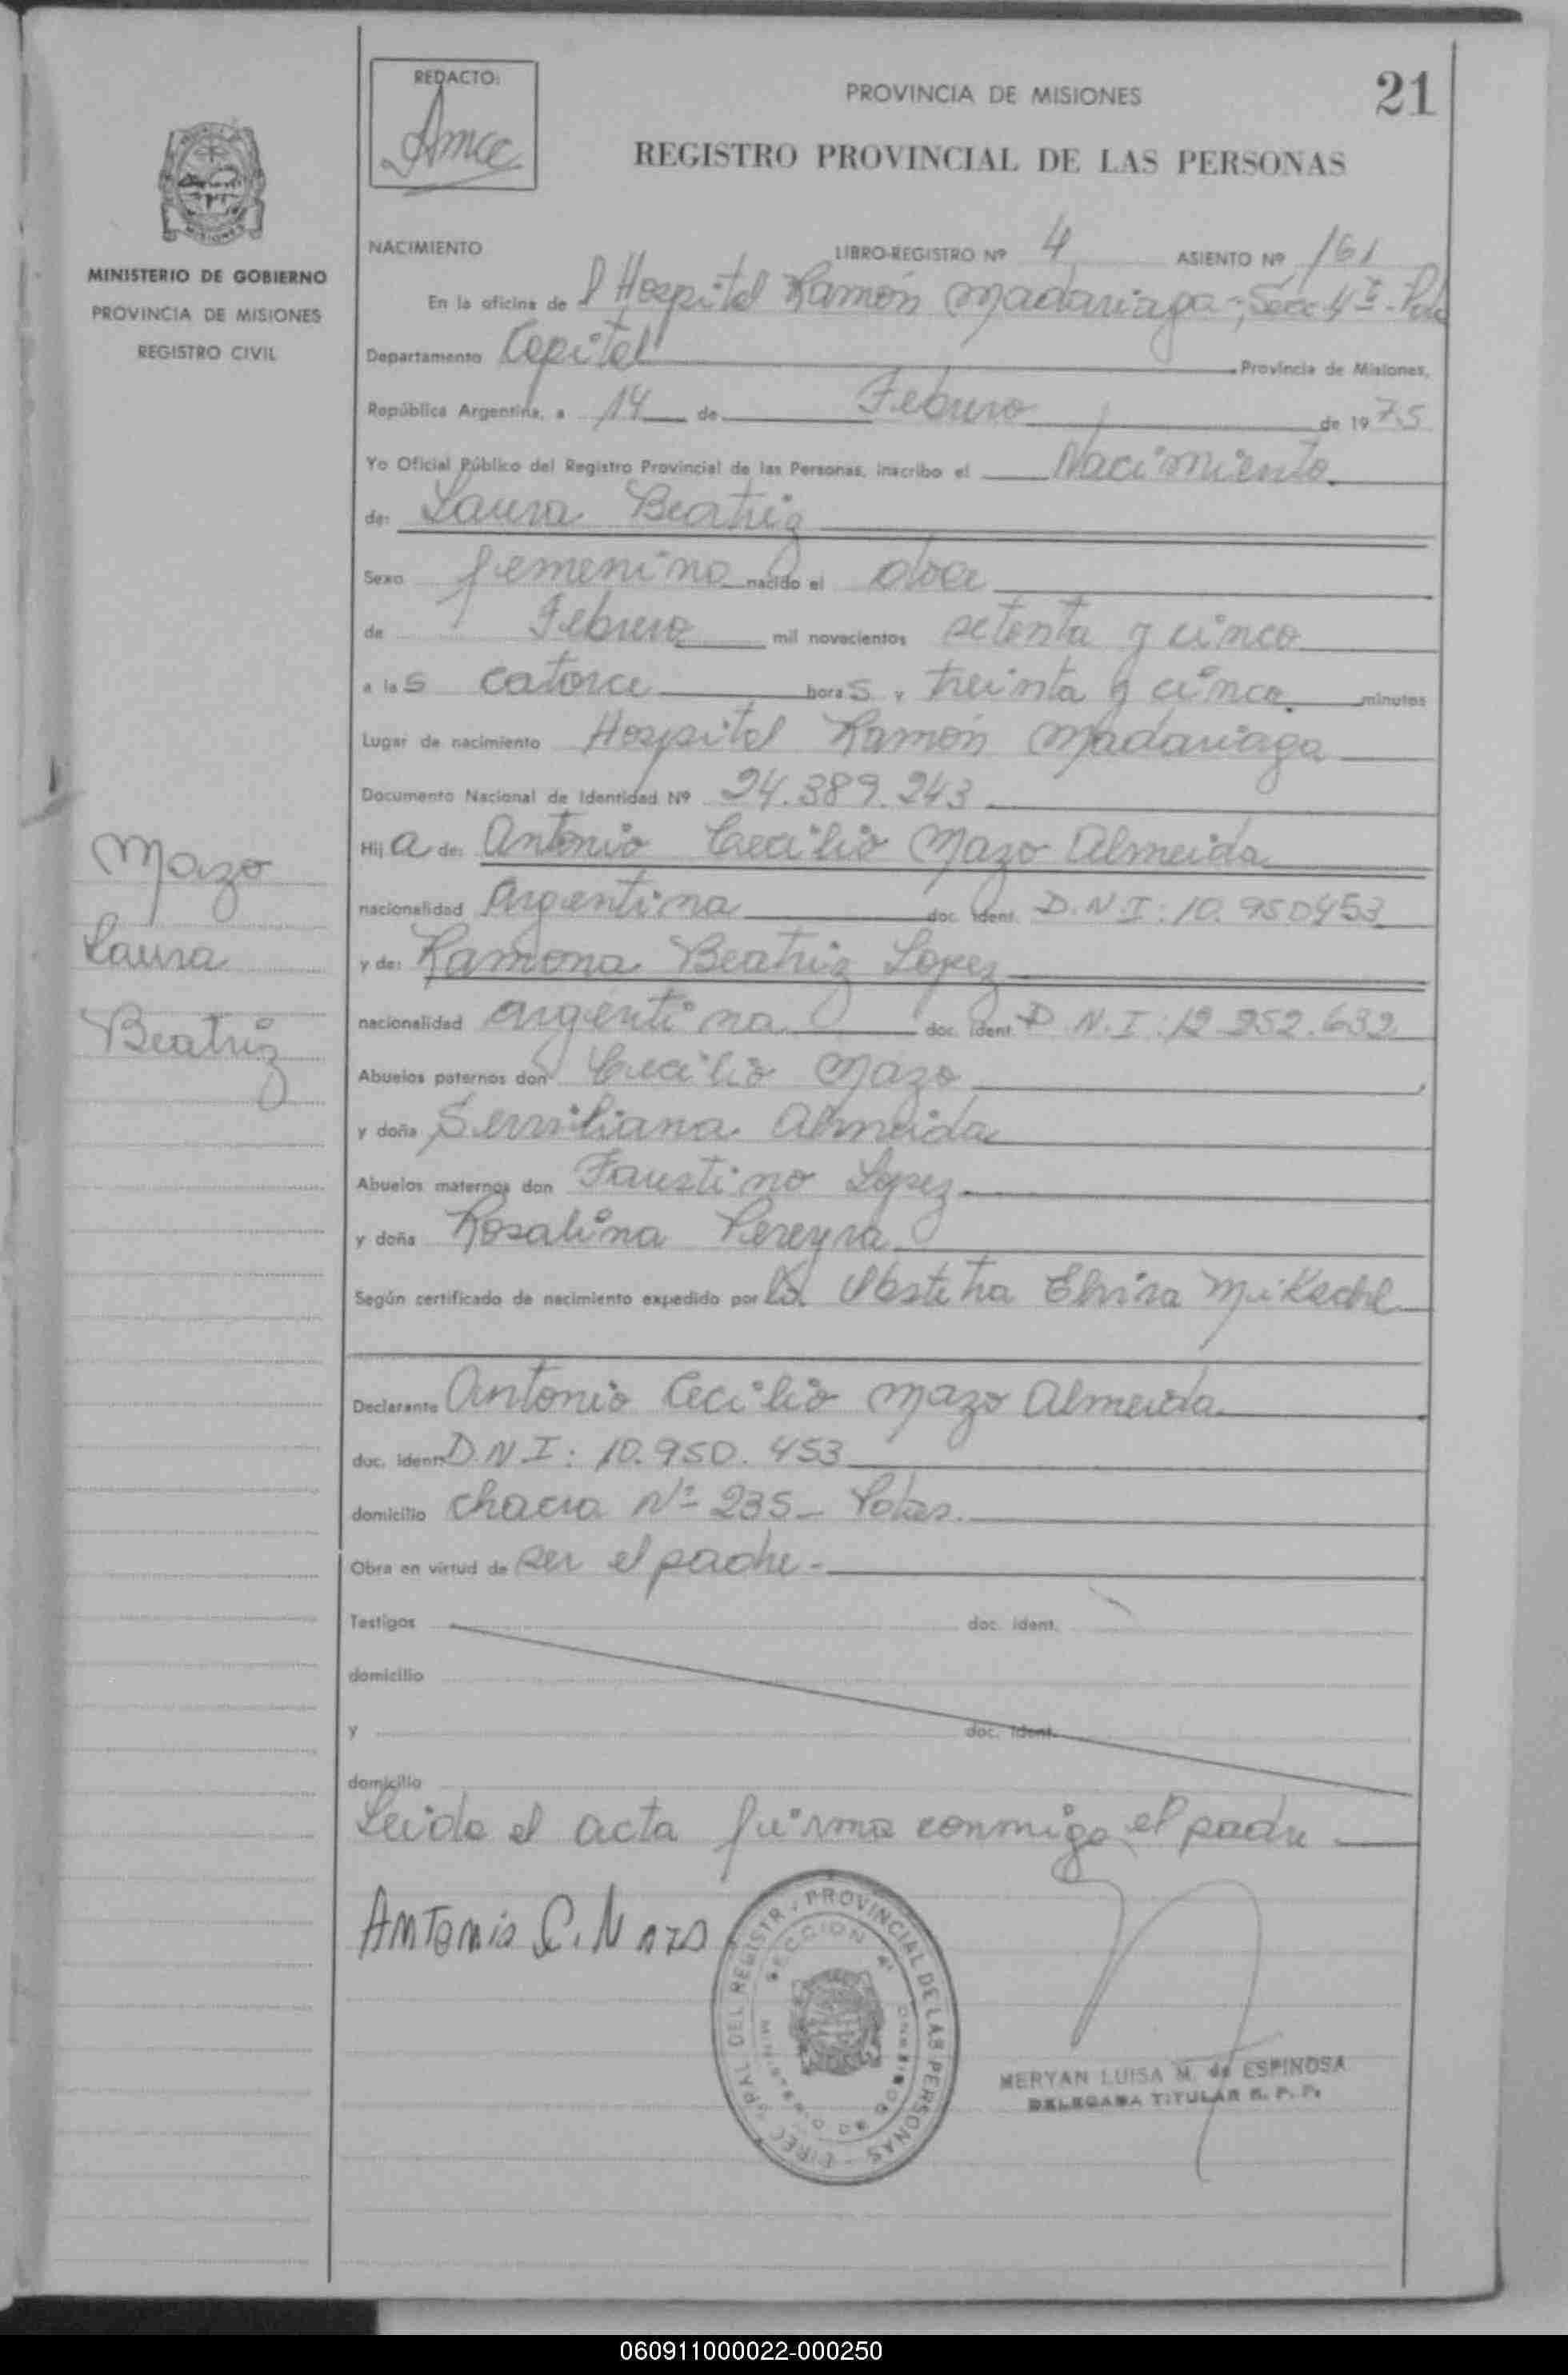 REDACTO:
PROVINCIA DE MISIONES
21
REGISTRO PROVINCIAL DE LAS PERSONAS
MINISTERIO DE GOBIERNO
PROVINCIA DE MISIONES
REGISTRO CIVIL
NACIMIENTO LIBRO-REGISTRO Nº 4 ASIENTO Nº 161
En la oficina de l Hospital Ramón Madariaga-; Secc 4ª -
Departamento Capital Provincia de Misiones,
República Argentina, a 14 de Febrero de 1975
Yo Oficial Público del Registro Provincial de las Personas, inscribo el Nacimiento
de: Laura Beatriz
Sexo femenino nacido el doce
de Febrero mil novecientos setenta y cinco
a las catorce horas y treinta y cinco minutos
Lugar de nacimiento Hospital Ramón Madariaga
Documento Nacional de Identidad Nº 24.389.243
Hija de: Antonio Cecilio Mazo Almeida
nacionalidad Argentina doc. ident. D.N.I: 10.950453
y de: Ramona Beatriz Lopez
nacionalidad argentina doc. ident. D.N.I: 12.952.632
Abuelos paternos don Cecilio Mazo
y doña Serviliana Almeida
Abuelos maternos don Faustino Lopez
y doña Rosalina Pereyra
Según certificado de nacimiento expedido por la Obstetra Elvira
Declarante Antonio Cecilio Mazo Almeida
doc. ident. D.N.I: 10.950.453
domicilio chacra Nº 235-
Obra en virtud de ser el padre-
Testigos doc. ident.
domicilio
y doc. ident.
domicilio
Leida el acta firma conmigo el padre
Mazo
Laura
Beatriz
Antonio C. Mazo
DIREC. GRAL DEL REGISTR. PROVINCIAL DE LAS PERSONAS
SECCION 4ª
MERYAN LUISA M. de ESPINOSA
DELEGADA TITULAR R. P. P.
060911000022-000250